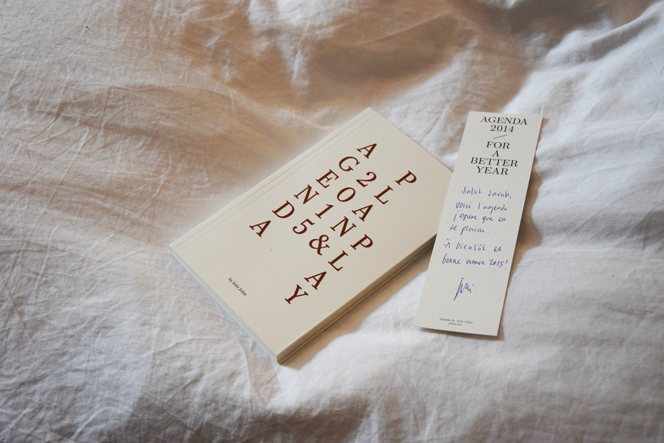 A P
G 2 L
E 0 A
N 1 N P
D 5 & L
A A
Y
by Julie
AGENDA
2014
FOR
A
BETTER
YEAR
Salut Jacob,
voici l'agenda
j'espère que ça
te plaira.
À bientôt et
bonne année 2015!
Agenda by Julie